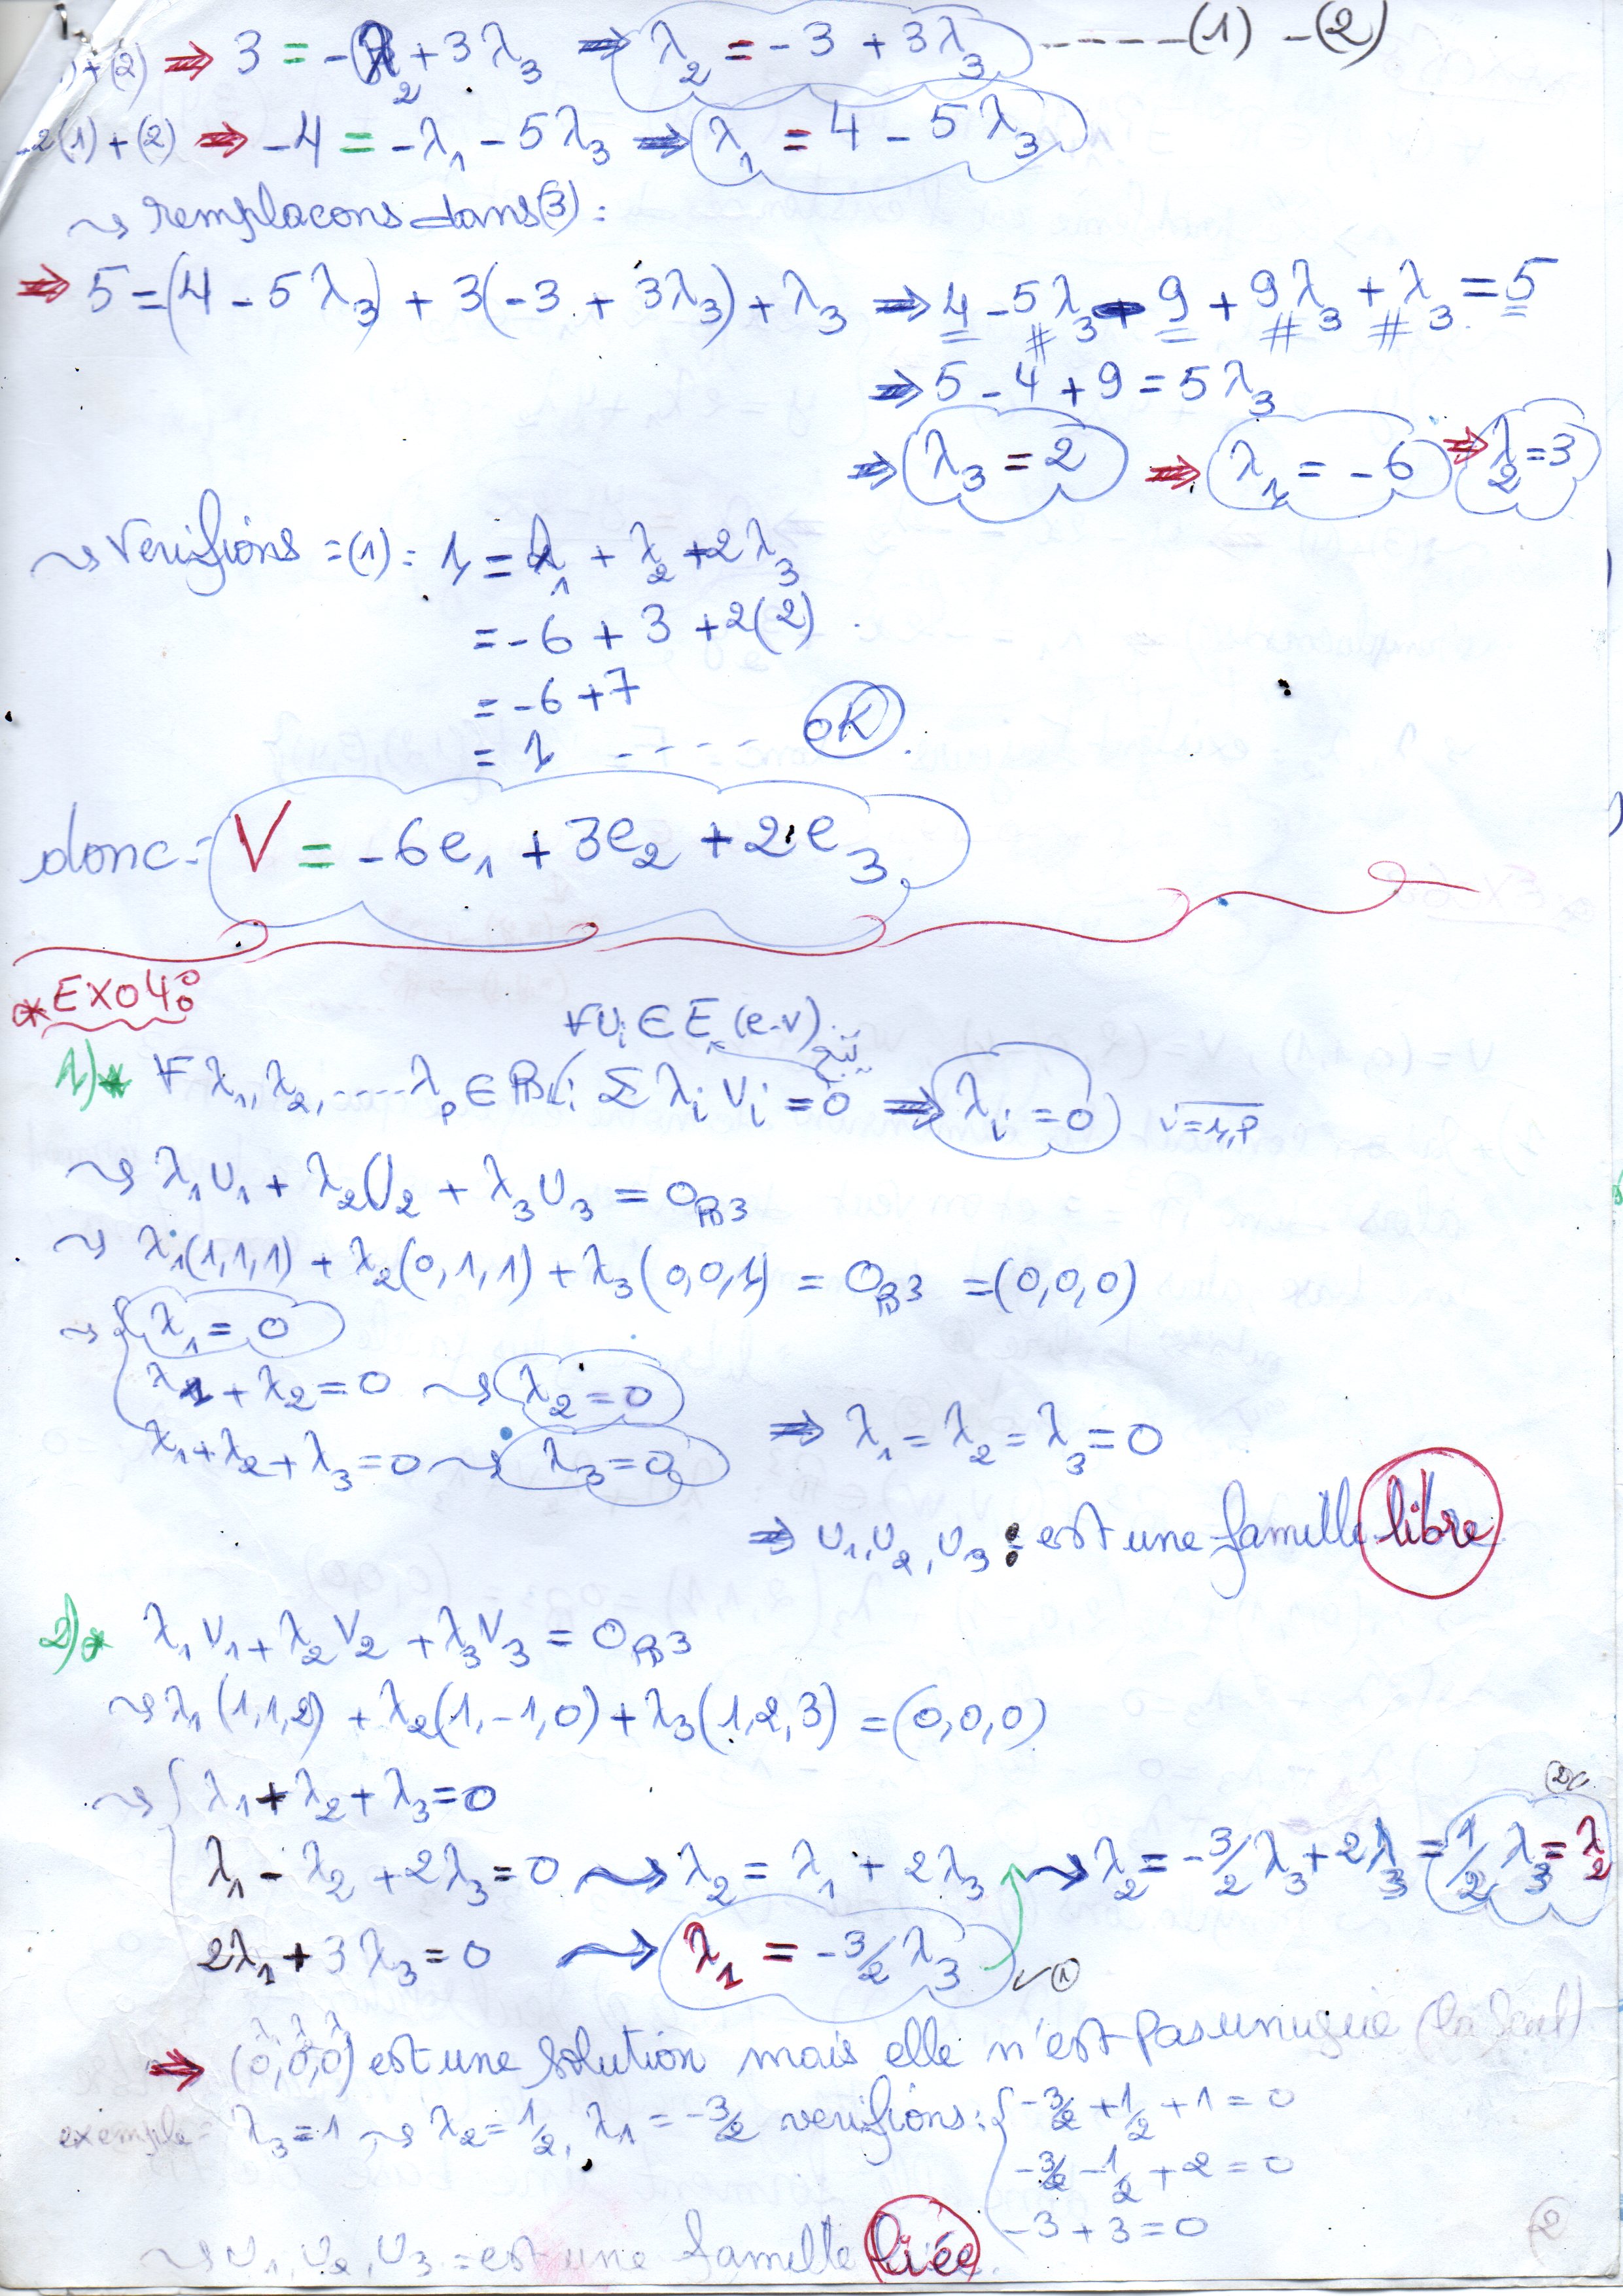 )+(2) ⇒ 3 = -λ₂ + 3λ₃ ⇒ λ₂ = -3 + 3λ₃ -----(1) -(2)
-2(1)+(2) ⇒ -4 = -λ₁ - 5λ₃ ⇒ λ₁ = 4 - 5λ₃
⇝ remplacons dans(3) :
⇒ 5 = (4 - 5λ₃) + 3(-3 + 3λ₃) + λ₃ ⇒ 4 - 5λ₃ - 9 + 9λ₃ + λ₃ = 5
⇒ 5 - 4 + 9 = 5λ₃
⇒ λ₃ = 2 ⇒ λ₁ = -6 ⇒ λ₂ = 3
⇝ Verifions =(1): 1 = λ₁ + λ₂ + 2λ₃
= -6 + 3 + 2(2)
= -6 + 7
= 1 ---- OK.
donc: V = -6e₁ + 3e₂ + 2e₃
*EXO4:
∀Uᵢ ∈ E (e.v)
1)* ∀ λ₁, λ₂, ..... λₚ ∈ ℝ; Σ λᵢ Vᵢ = 0 ⇒ λᵢ = 0 i=1,p
⇝ λ₁U₁ + λ₂U₂ + λ₃U₃ = 0ℝ3
⇝ λ₁(1,1,1) + λ₂(0,1,1) + λ₃(0,0,1) = 0ℝ3 = (0,0,0)
⇝ { λ₁ = 0
λ₁ + λ₂ = 0 ⇝ λ₂ = 0
λ₁ + λ₂ + λ₃ = 0 ⇝ λ₃ = 0
⇒ λ₁ = λ₂ = λ₃ = 0
⇒ U₁, U₂, U₃ : est une famille libre
2)* λ₁V₁ + λ₂V₂ + λ₃V₃ = 0ℝ3
⇝ λ₁(1,1,2) + λ₂(1,-1,0) + λ₃(1,2,3) = (0,0,0)
⇝ { λ₁ + λ₂ + λ₃ = 0
λ₁ - λ₂ + 2λ₃ = 0 ⇝ λ₂ = λ₁ + 2λ₃ ⇝ λ₂ = -3/2 λ₃ + 2λ₃ = 1/2 λ₃ = λ₂ (2)
2λ₁ + 3λ₃ = 0 ⇝ λ₁ = -3/2 λ₃ (1)
⇒ (0,0,0) est une solution mais elle n'est pas unique (la seul)
exemple = λ₃ = 1 ⇝ λ₂ = 1/2, λ₁ = -3/2 verifions: { -3/2 + 1/2 + 1 = 0
-3/2 - 1/2 + 2 = 0
-3 + 3 = 0
⇝ U₁, U₂, U₃ = est une famille liée.
2